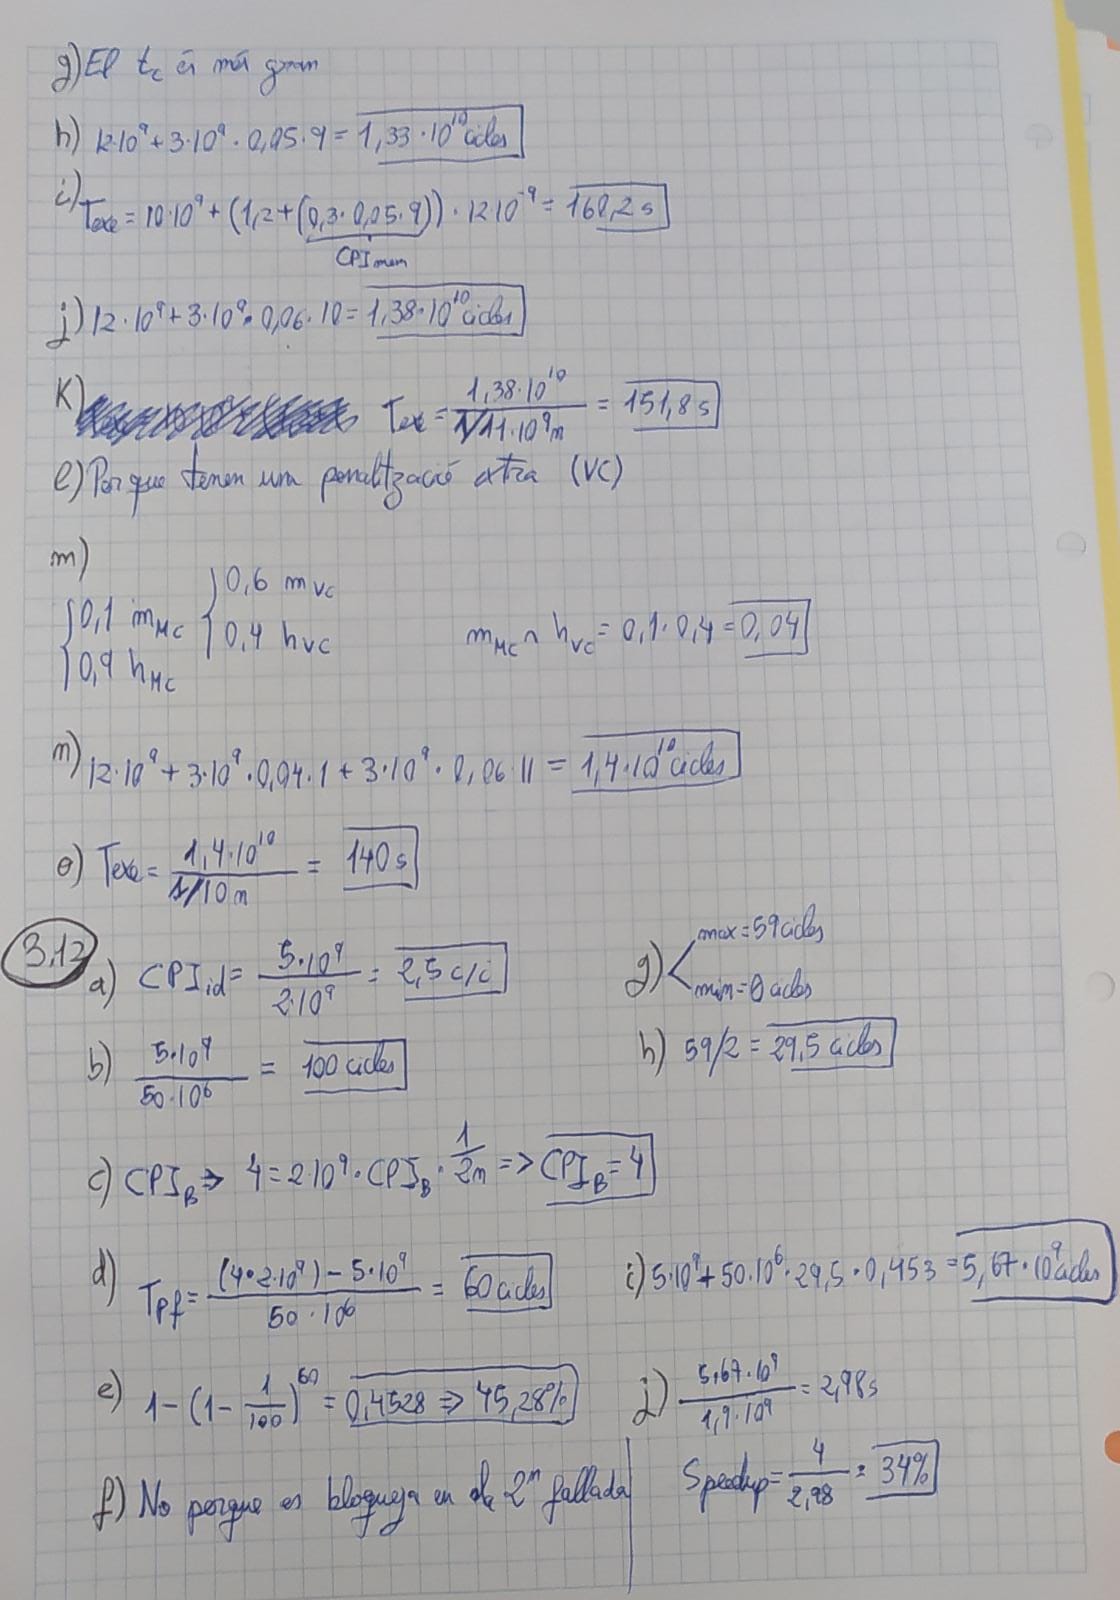 g) El tc és més gran
h) 12·10⁹ + 3·10⁹ · 0,05 · 9 = 1,33 · 10¹⁰ cicles
i) Texe = 10·10⁹ + (1,2 + (0,3 · 0,05 · 9)) · 12·10⁻⁹ = 160,2 s
CPI mem
j) 12 · 10⁹ + 3·10⁹ · 0,06 · 10 = 1,38 · 10¹⁰ cicles
K) Texe = 1,38·10¹⁰ / 1/11·10⁹n = 151,8 s
l) Porque tenen una penalització extra (VC)
m)
{0,1 mMC {0,6 mVC
{0,9 hMC {0,4 hVC
mMC ∩ hVC = 0,1 · 0,4 = 0,04
n) 12·10⁹ + 3·10⁹ · 0,04 · 1 + 3·10⁹ · 0,06 · 11 = 1,4·10¹⁰ cicles
o) Texe = 1,4·10¹⁰ / 1/10n = 140 s
3.12
a) CPIid = 5·10⁹ / 2·10⁹ = 2,5 c/i
b) 5·10⁹ / 50·10⁶ = 100 cicles
c) CPIB => 4 = 2·10⁹ · CPIB · 1/2n => CPIB = 4
d) Tpf = (4·2·10⁹) - 5·10⁹ / 50·10⁶ = 60 cicles
e) 1 - (1 - 1/100)⁶⁰ = 0,4528 => 45,28%
f) No porque es bloqueja en la 2ⁿ fallada
g) < max = 59 cicles
min = 0 cicles
h) 59/2 = 29,5 cicles
i) 5·10⁹ + 50·10⁶ · 29,5 · 0,453 = 5,67 · 10⁹ cicles
j) 5,67·10⁹ / 1,9·10⁹ = 2,98 s
Speedup = 4 / 2,98 = 34%